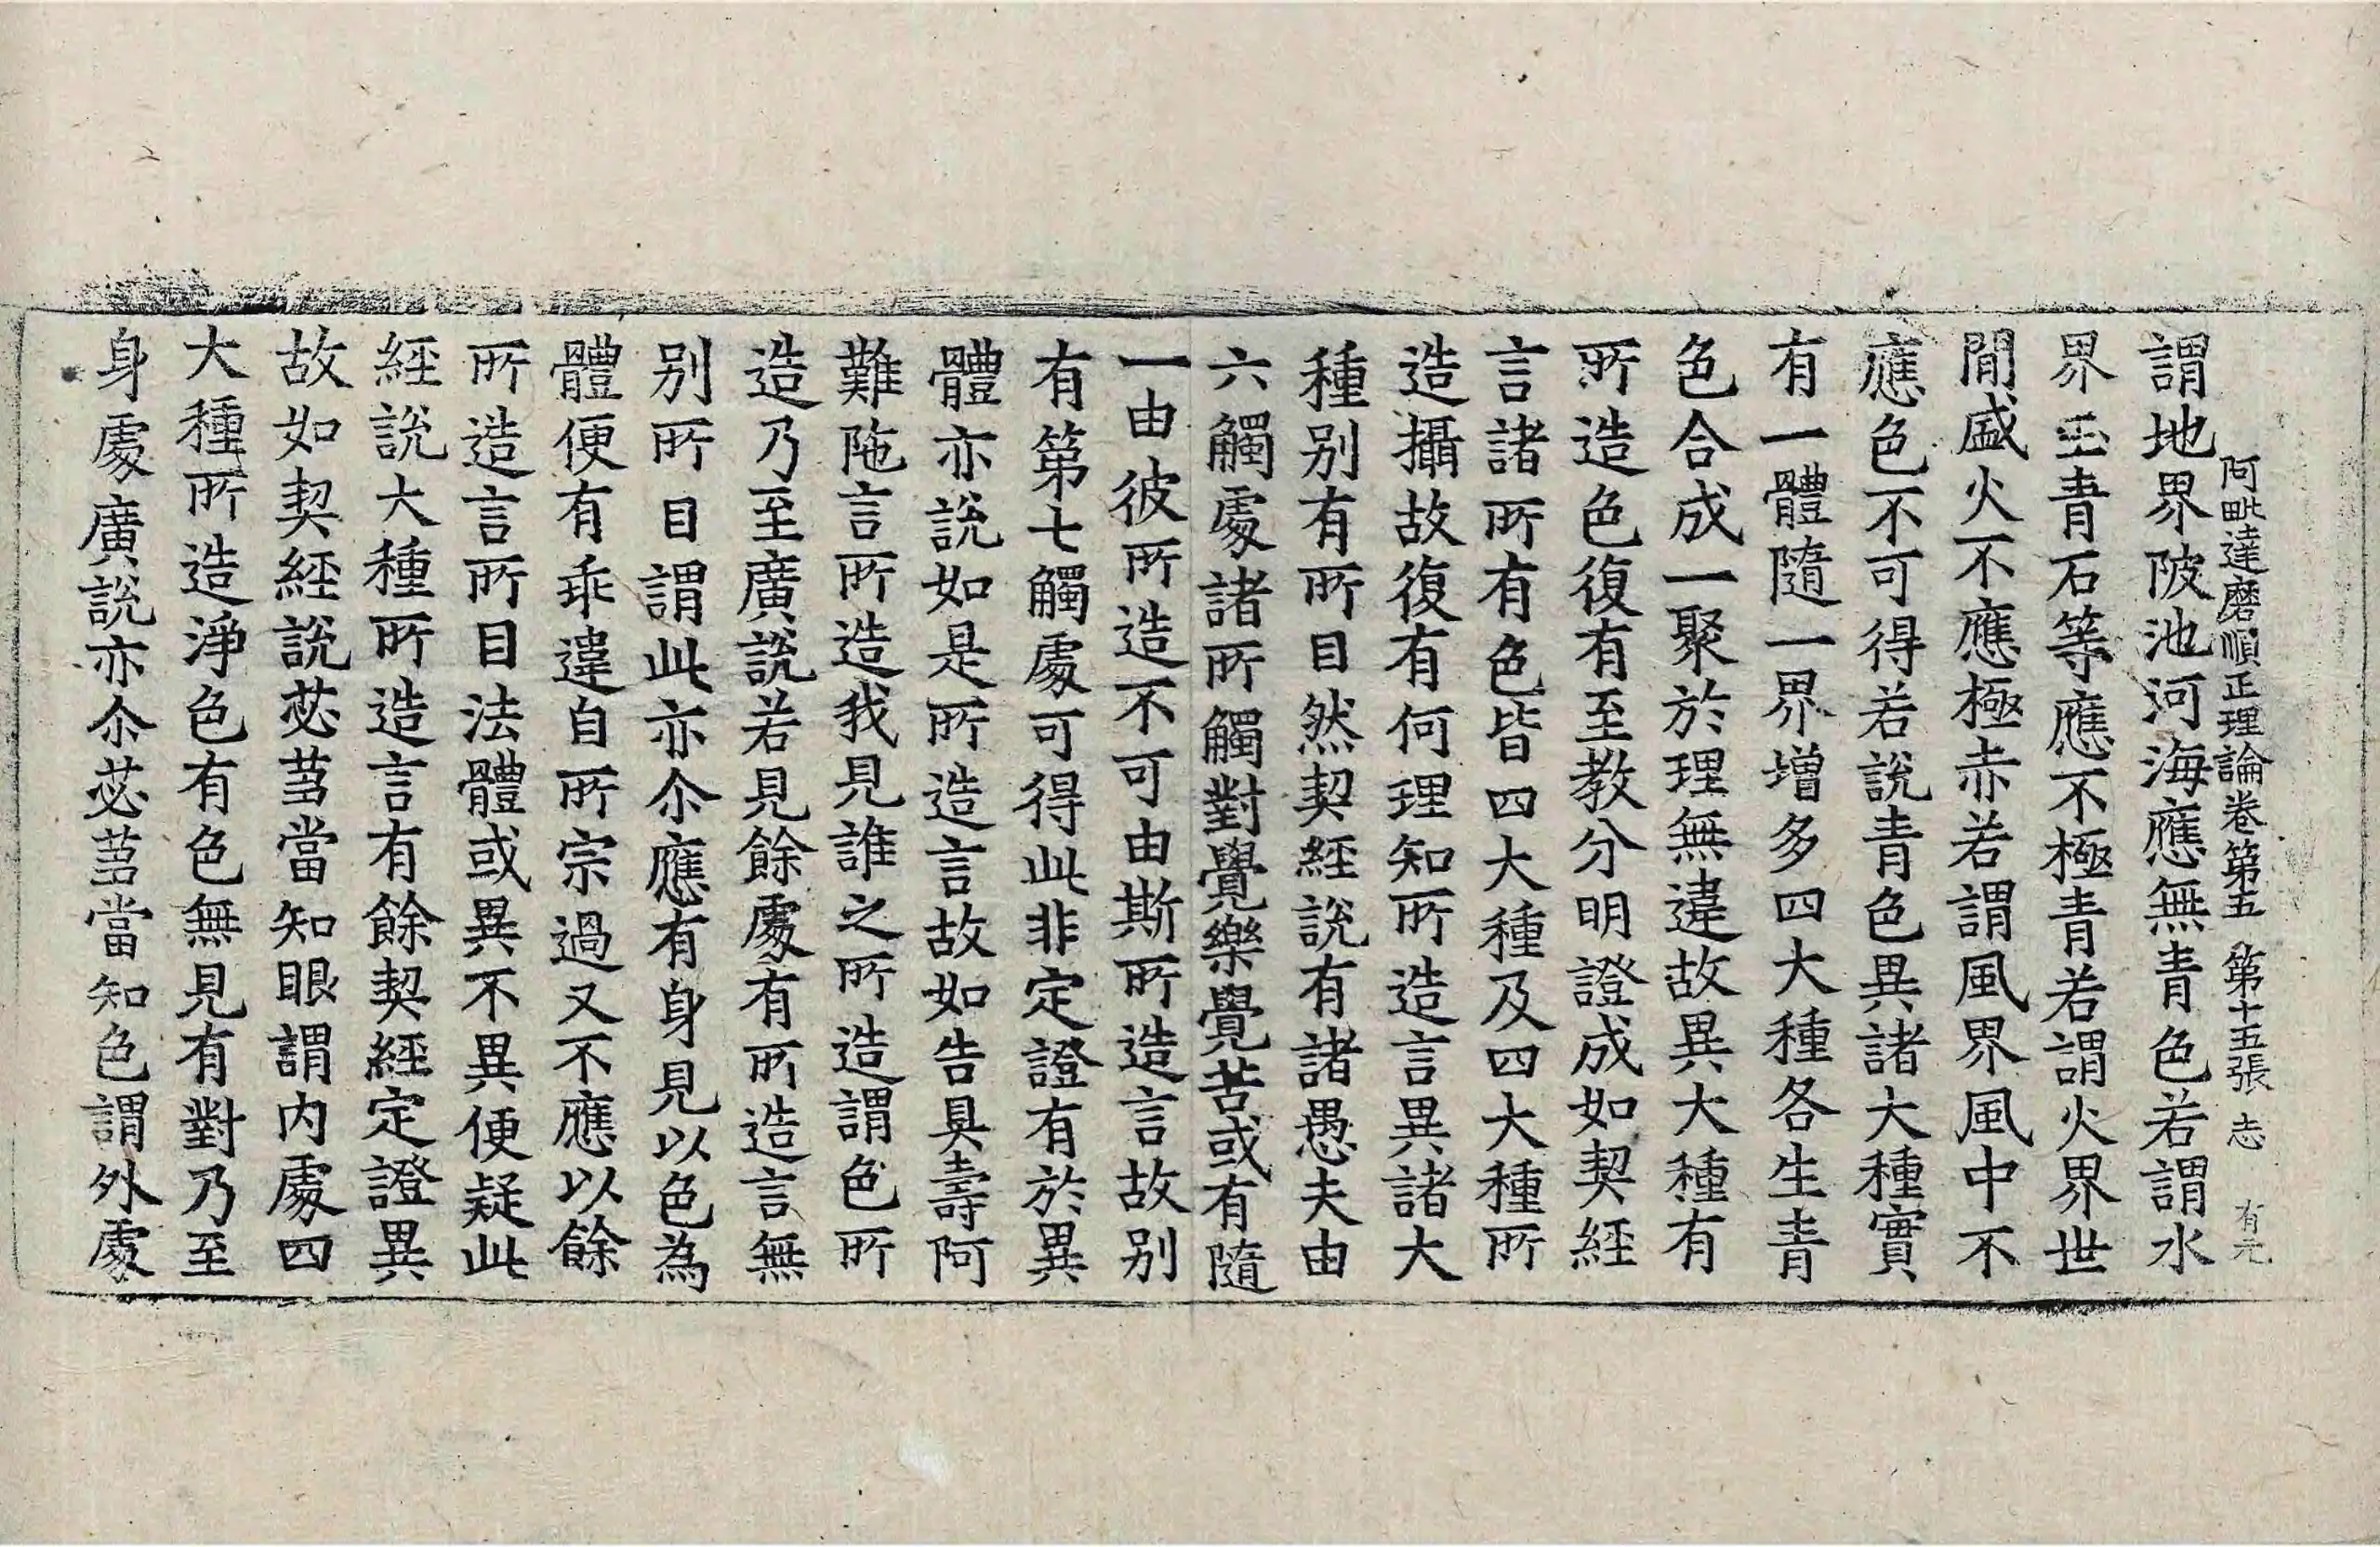 阿毗達磨順正理論卷第五　第十五張　志　有元
謂地界陂池河海應無青色若謂水
界玉青石等應不極青若謂火界世
間盛火不應極赤若謂風界風中不
應色不可得若說青色異諸大種實
有一體隨一界增多四大種各生青
色合成一聚於理無違故異大種有
所造色復有至教分明證成如契經
言諸所有色皆四大種及四大種所
造攝故復有何理知所造言異諸大
種別有所目然契經說有諸愚夫由
六觸處諸所觸對覺樂覺苦或有隨
一由彼所造不可由斯所造言故別
有第七觸處可得此非定證有於異
體亦說如是所造言故如告具壽阿
難陁言所造我見誰之所造謂色所
造乃至廣說若見餘處有所造言無
別所目謂此亦尒應有身見以色為
體便有乖違自所宗過又不應以餘
所造言所目法體或異不異便疑此
經說大種所造言有餘契經定證異
故如契經說苾芻當知眼謂內處四
大種所造淨色有色無見有對乃至
身處廣說亦尒苾芻當知色謂外處